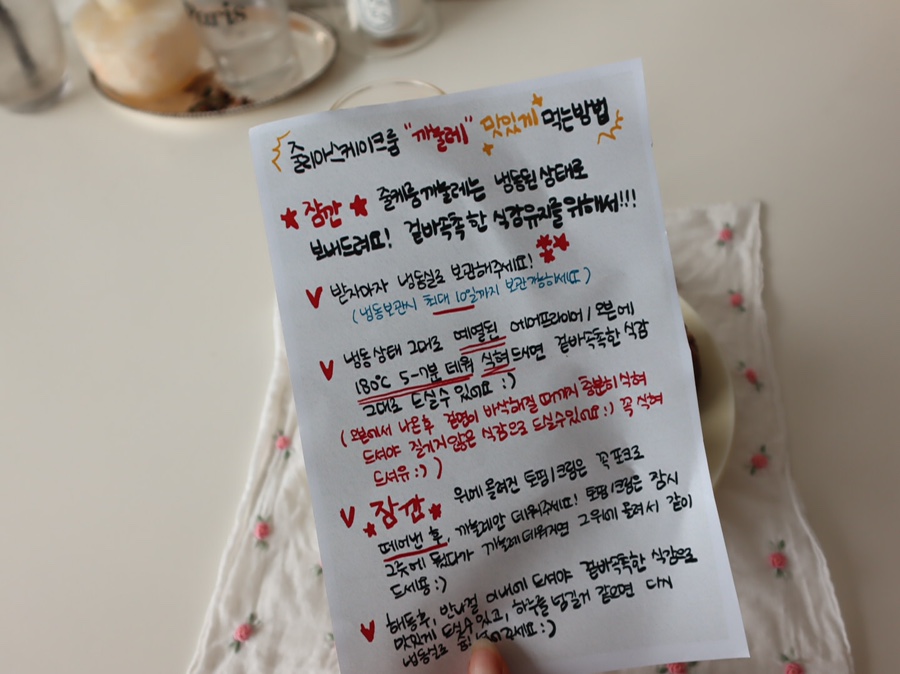 Paris
줄리아스케이크룸 "까눌레" 맛있게 먹는방법
잠깐 줄케룸까눌레는 냉동된 상태로
보내드려요! 겉바속촉한 식감유지를 위해서!!!
받자마자 냉동실로 보관해주세요!
(냉동보관시 최대 10일까지 보관가능하세요)
냉동상태 그대로 예열된 에어프라이어/오븐에
180℃ 5-7분 데워 식혀드시면 겉바속촉한 식감
그대로 드실수 있어요 :)
(오븐에서 나온후 겉면이 바삭해질 때까지 충분히 식혀
드셔야 질겨지않은 식감으로 드실수있어요:) 꼭 식혀
드셔유:))
잠깐 위에 올려진 토핑/크림은 꼭 포크로
떼어낸 후, 까눌레만 데워주세요! 토핑/크림은 잠시
그릇에 뒀다가 까눌레 데워지면 그위에 올려서 같이
드세용:)
해동후, 반나절 이내에 드셔야 겉바속촉한 식감으로
맛있게 드실수 있고, 하루를 넘길거 같으면 다시
냉동실로 주세요:)